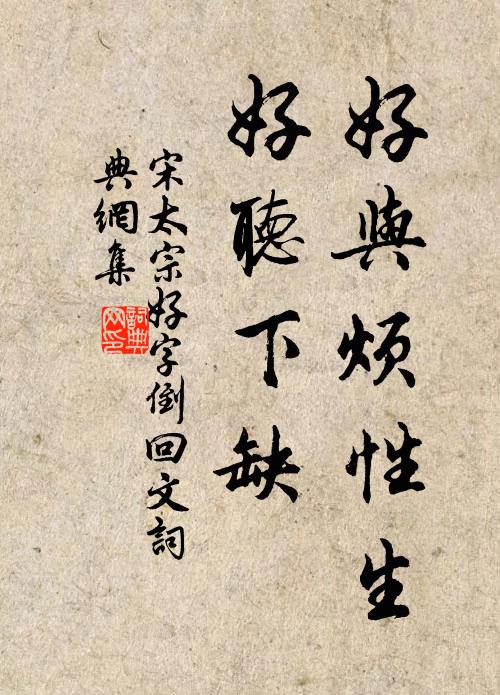 好與煩性生
好聽下缺
宋太宗好字倒回文詞
典網集
詞典
網印